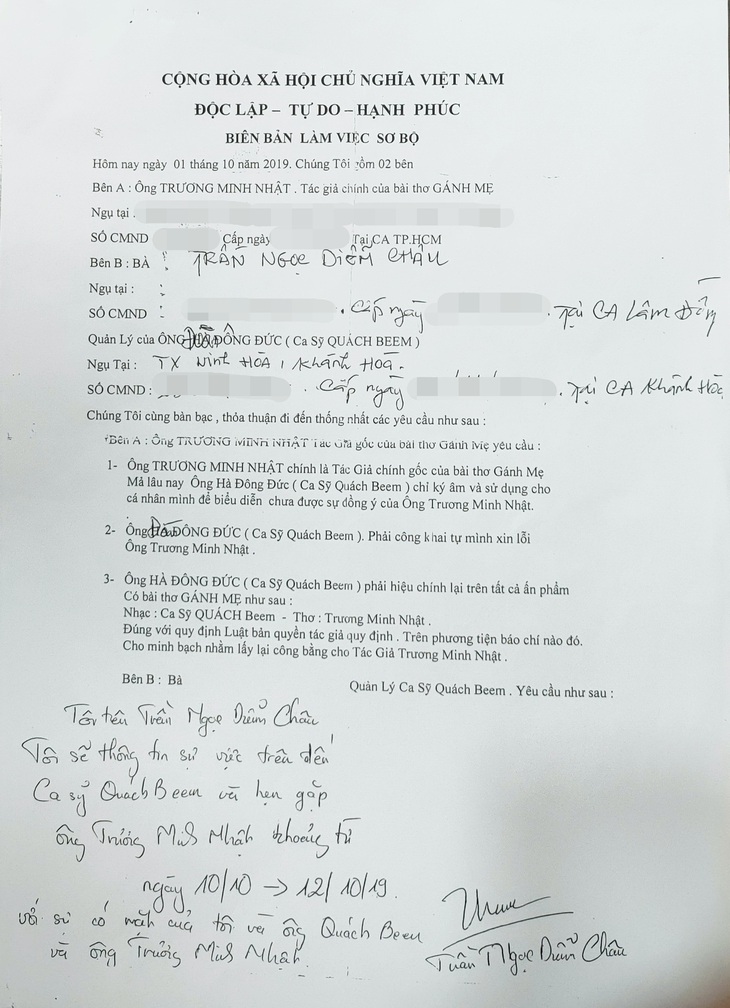 CỘNG HÒA XÃ HỘI CHỦ NGHĨA VIỆT NAM
ĐỘC LẬP – TỰ DO – HẠNH PHÚC
BIÊN BẢN LÀM VIỆC SƠ BỘ
Hôm nay ngày 01 tháng 10 năm 2019. Chúng Tôi gồm 02 bên
Bên A : Ông TRƯƠNG MINH NHẬT . Tác giả chính của bài thơ GÁNH MẸ
Ngụ tại .
SỐ CMND Cấp ngày Tại CA TP.HCM
Bên B : BÀ : TRẦN NGỌC DIỄM CHÂU
Ngụ tại :
SỐ CMND : . Cấp ngày . Tại CA Lâm Đồng
Quản Lý của ÔNG HÀ ĐÔNG ĐỨC ( Ca Sỹ QUÁCH BEEM )
Ngụ Tại : TX Ninh HÒA , Khánh Hoà .
SỐ CMND : . Cấp ngày . Tại CA Khánh Hòa
Chúng Tôi cùng bàn bạc , thỏa thuận đi đến thống nhất các yêu cầu như sau :
*Bên A : Ông TRƯƠNG MINH NHẬT Tác Giả gốc của bài thơ Gánh Mẹ yêu cầu :
1- Ông TRƯƠNG MINH NHẬT chính là Tác Giả chính gốc của bài thơ Gánh Mẹ
Mả lâu nay Ông Hà Đông Đức ( Ca Sỹ Quách Beem ) chỉ ký âm và sử dụng cho
cá nhân mình để biểu diễn chưa được sự đồng ý của Ông Trương Minh Nhật.
2- Ông HÀ ĐÔNG ĐỨC ( Ca Sỹ Quách Beem ). Phải công khai tự mình xin lỗi
Ông Trương Minh Nhật .
3- Ông HÀ ĐÔNG ĐỨC ( Ca Sỹ Quách Beem ) phải hiệu chính lại trên tất cả ấn phẩm
Có bài thơ GÁNH MẸ như sau :
Nhạc : Ca Sỹ QUÁCH BEEM - Thơ : Trương Minh Nhật .
Đúng với quy định Luật bản quyền tác giả quy định . Trên phương tiện báo chí nào đó.
Cho minh bạch nhằm lấy lại công bằng cho Tác Giả Trương Minh Nhật .
Bên B : Bà Quản Lý Ca Sỹ Quách Beem . Yêu cầu như sau :
Tôi tên Trần Ngọc Diễm Châu
Tôi sẽ thông tin sự việc trên đến
Ca sỹ Quách Beem và hẹn gặp
ông Trương Minh Nhật khoảng từ
ngày 10/10 → 12/10/19.
với sự có mặt của tôi và ông Quách Beem
và ông Trương Minh Nhật.
Trần Ngọc Diễm Châu